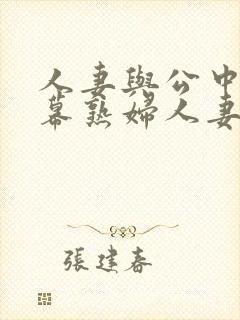 人妻與公中
幕熟婦人妻
張建春